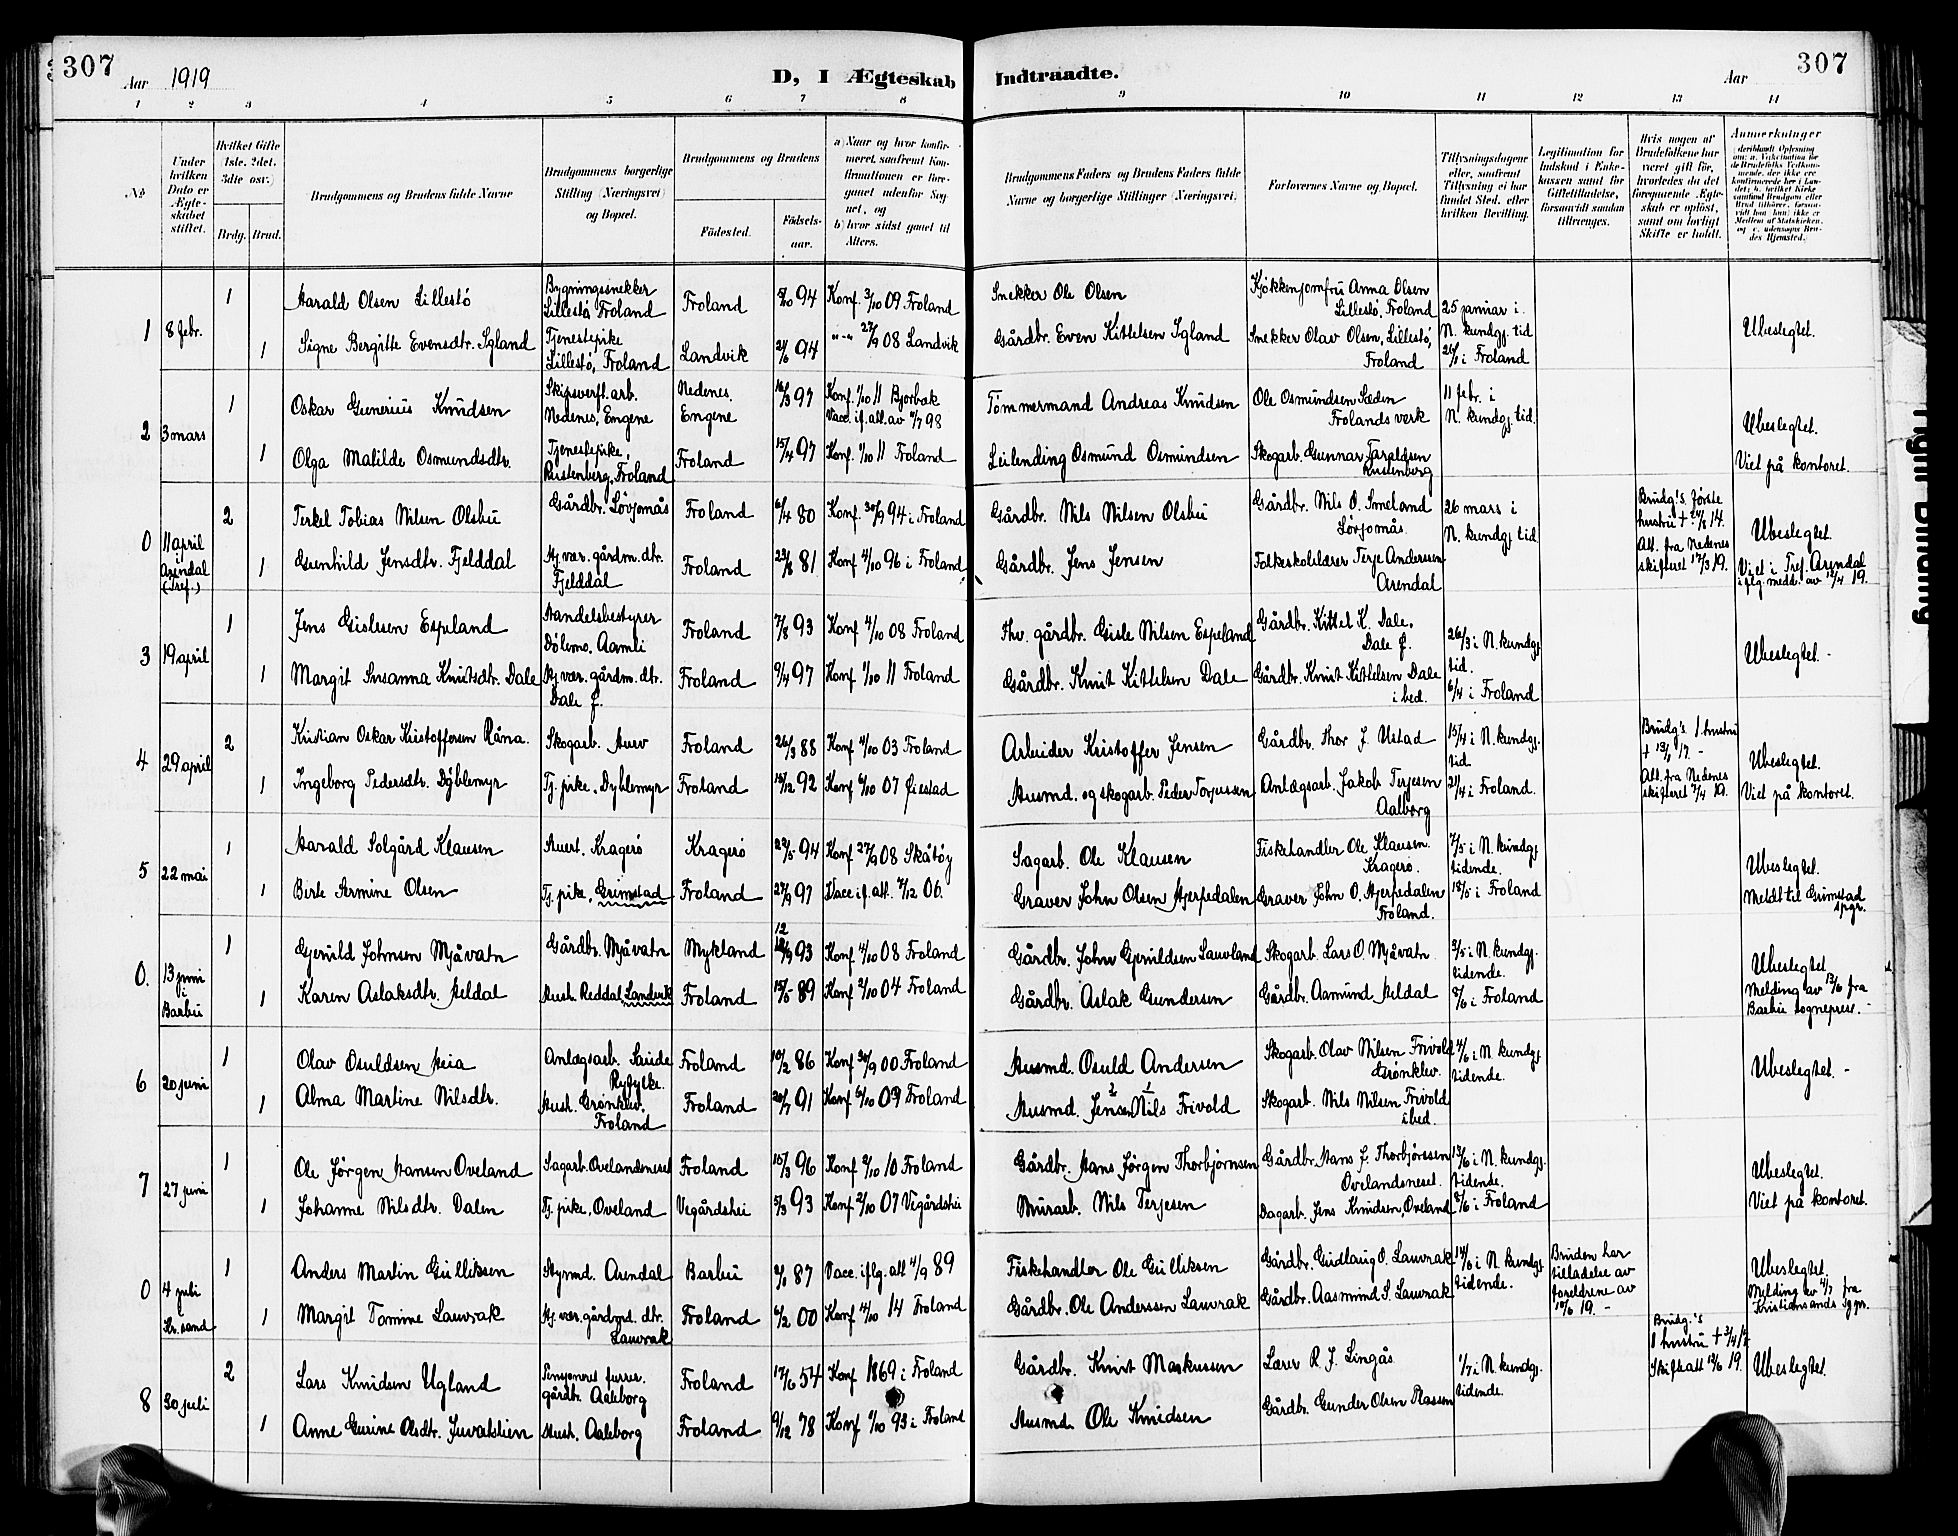 307
Aar 1919
D, I Ægteskab Indtraadte.
Aar
307
1 2 3 4 5 6 7 8 9 10 11 12 13 14
№
Under hvilken Dato er Ægteskabet stiftet.
Hvilket Gifte (1ste. 2det. 3dte osv.)
Brdg. Brud.
Brudgommens og Brudens fulde Navne
Brudgommens borgerlige Stilling (Næringsvei) og Bopæl.
Brudgommens og Brudens
Fødested.
Fødselsaar.
a) Naar og hvor konfirmeret, saafremt Konfirmationen er foregaaet udenfor Sognet, og
b) hvor sidst gaaet til Alters.
Brudgommens Faders og Brudens Faders fulde Navne og borgerlige Stillinger (Næringsvei).
Forlovernes Navne og Bopæl.
Tillysningsdagene eller, saafremt Tillysning ei har fundet Sted, efter hvilken Bevilling.
Legitimation for Indskud i Enkekassen samt for Giftetilladelse, forsaavidt saadan tiltrænges.
Hvis nogen af Brudefolkene har været gift før, hvorledes da det foregaaende Ægteskab er opløst, samt om lovligt Skifte er holdt.
Anmerkninger
1 8 febr.
1 Harald Olsen Lillestö
Bygningssnekker
Lillestö, Froland
Froland
5/10 94
Konf. 3/10 09 Froland
Snekker Ole Olsen
Kjökkenjomfru Anna Olsen
Lillestö, Froland
25 januar i
N. kundgj. tid
26/1 i Froland
Ubeslegtet.
1 Signe Bergitte Evensdtr. Igland
Tjenestepike
Lillestö, Froland
Landvik
94
" - " 27/9 08 Landvik
Gårdbr. Even Kittelsen Igland
Snekker Olav Olsen, Lillestö,
Froland
2 3 mars
1 Oskar Gunerius Knudsen
Skipsverft.arb.
Nedenes, Engene
Nedenes.
Engene
16/3 97
Konf. 1/10 11 Bjorbæk
Vacc. if. att. av 98
Tömmermand Andreas Knudsen
Ole Osmundsen Sæden
Frolands verk
11 febr. i
N. kundgj. tid.
Ubeslegtet.
Viet på kontoret.
1 Olga Matilde Osmundsdtr.
Tjenestepike,
Ristenberg, Froland
Froland
15/4 97
Konf. 1/10 11 Froland
Leilending Osmund Osmundsen
Skogarb. Gunnar Taraldsen
Ristenberg
0 11 april
i
Arendal
(Tref.)
2 Terkel Tobias Nilsen Olsbu
Gårdbr. Lövjomås
Froland
6/4 80
Konf. 30/9 94 i Froland
Gårdbr. Nils Nilsen Olsbu
Gårdbr. Nils O. Smeland
Lövjomås
26 mars i
N. kundgj. tid
Brudg.'s förste
hustru † 14.
Att. fra Nedenes
skifteret 17/3 19.
Ubeslegtet.
Viet i Tref. Arendal
iflg. medd. av 12/4 19.
1 Gunhild Jensdtr. Fjelddal
Hj. vær. gårdm. dtr.
Fjelddal
Froland
22/8 81
Konf. 4/10 96 i Froland
Gårdbr. Jens Jensen
Folkeskolelærer Terje Anderssen
Arendal
3 19 april
1 Jens Gislesen Espeland
Handelsbestyrer
Dölemo. Aamli
Froland
7/8 93
Konf. 4/10 08 Froland
Fhv. gårdbr. Gisle Nilsen Espeland
Gårdbr. Kittel K. Dale.
Dale f.
26/3 i N. kundgj.
tid.
6/4 i Froland
Ubeslegtet. -
1 Margit Susanna Knutsdtr. Dale
Hj. vær. gårdm. dtr.
Dale f.
Froland
9/4 97
Konf. 1/10 11 Froland
Gårdbr. Knut Kittelsen Dale
Gårdbr. Knut Kittelsen Dale
ibed.
4 29 april
2 Kristian Oskar Kristoffersen Råna.
Skogarb. Hurv
Froland
26/3 88
Konf 4/10 03 Froland
Arbeider Kristoffer Jensen
Gårdbr. Thor J. Ustad
15/4 i N. kundgj.
tid.
21/4 i Froland.
Brudg's. 1. hustru
† 17. -
Att. fra Nedenes
skifteret 2/4 19.
Ubeslegtet.
Viet på kontoret.
1 Ingeborg Pedersdtr. Dyblemyr
Tj. pike. Dyblemyr
Froland
15/12 92
Konf 6/10 07 Öiestad
Husmd. og skogarb. Peder Torjussen
Anlægsarb. Jakob Terjesen
Aalborg
5 22 mai
1 Harald Solgård Klausen
Auert. Kragerö
Kragerö
22/5 94
Konf 27/9 08 Skåtöy
Sagarb. Ole Klausen
Fiskehandler Ole Klausen.
Kragerö.
7/5 i N. kundgj.
tidende.
18/5 i Froland
Ubeslegtet.
Meldt til Grimstad
spgr.
1 Birte Hermine Olsen
Tj. pike, Grimstad
Froland
27/9 97
Vacc if. att. 7/12 06.
Graver John Olsen Hjerpedalen
Graver John O. Hjerpedalen
Froland.
0. 13 juni
i
Barbu
1 Gjerulf Johnsen Mjåvatn
Gårdbr. Mjåvatn
Mykland
12
/9 93
Konf 4/10 08 Froland
Gårdbr. John Gjerulfsen Lauvland
Skogarb. Lars O. Mjåvatn
3/5 i N. kundgj.
tidende.
8/6 i Froland
Ubeslegtet.
Melding av 13/6 fra
Barbu sogneprest. -
1 Karen Aslaksdtr. Heldal
Hush. Reddal, Landvik
Froland
15/5 89
Konf 2/10 04 Froland
Gårdbr. Aslak Gundersen
Gårdbr. Aamund Heldal
6 20 juni
1 Olav Osuldsen Heia
Anlægsarb. Saude
Ryfylke.
Froland
10/2 86
Konf 30/9 00 Froland
Husmd. Osuld Andersen
Skogarb. Olav Nilsen Frivold
Grönklev.
4/6 i N. kundgj.
tidende.
Ubeslegtet. -
1 Alma Martine Nilsdtr.
Hush. Grönklev,
Froland
Froland
20/7 91
Konf 6/10 09 Froland
2 1
Husmd. Jensen Nils Frivold
Skogarb. Nils Nilsen Frivold
ibed.
7 27 juni
1 Ole Jörgen Hansen Oveland
Sagarb. Ovelandsneset
Froland
15/3 96
Konf 2/10 10 Froland
Gårdbr. Hans Jörgen Thorbjörnsen
Gårdbr. Hans J. Thorbjörnsen
Ovelandsneset.
12/6 i N. kundgj.
tidende.
8/6 i Froland
Ubeslegtet.
Viet på kontoret.
1 Johanne Nilsdtr. Dalen
Tj. pike, Oveland
Vegårdshei
5/3 93
Konf 2/10 07 Vegårdshei
Murarb. Nils Terjesen
Dagarb. Jens Knudsen, Oveland
0 4 juli
Kr.sand
1 Anders Martin Gulliksen
Styrmd. Arendal
Barbu
2/1 87
Vacc. iflg. att 4/9 89
Fiskehandler Ole Gulliksen
Gårdbr. Gudlaug O. Lauvrak
14/6 i N. kundgj.
tidende.
Bruden har
tilladelse av
foreldrene av
10/6 19. -
Ubeslegtet.
Melding av 4/7 fra
Kristiansands sgpr.
1 Margit Tomine Lauvrak
Hj. vær. gårdmd. dtr.
Lauvrak
Froland
6/2 00
Konf 4/10 14 Froland
Gårdbr. Ole Anderssen Lauvrak
Gårdbr. Aasmund S. Lauvrak
8 30 juli
2 Lars Knudsen Ugland
Pensjoneret furer.
gårdbr. Aaleborg
Froland
17/6 54
Konf 1869 i Froland
Gårdbr. Knut Markussen
Lærer R. J. Lingås
1/7 i N. kundgj.
tidende.
Brudg.'s
1 hustru † 3/4 17
Skifteatt 13/6 19.
Ubeslegtet.
1 Anne Gurine Olsdtr. Juvatslien
Hush. Aaleborg
Froland
9/12 78
Konf 1/10 93 i Froland
Husmd. Ole Knudsen
Gårdbr. Gunder Olsen Plassen